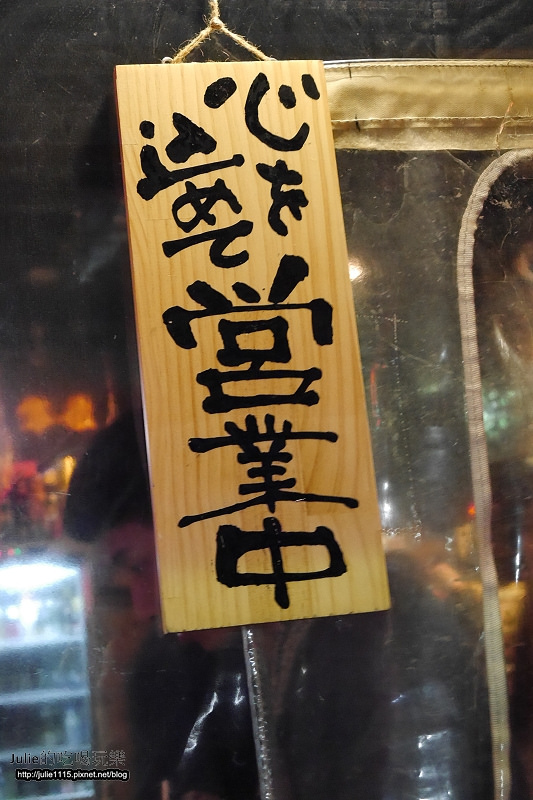 心を
込めて
営業中
Julie的吃喝玩樂
http://julie1115.pixnet.net/blog